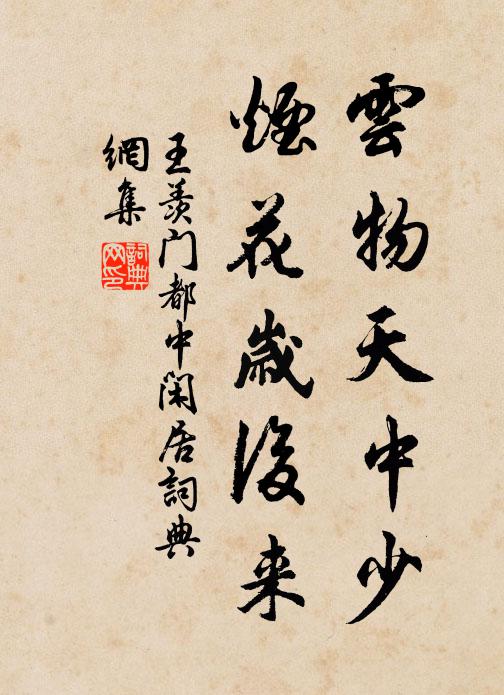 雲物天中少
煙花歲後来
王羨门都中閑居詞典
網集
詞典
网印